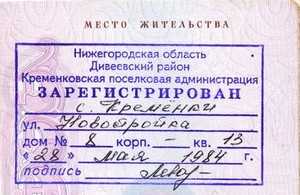 МЕСТО ЖИТЕЛЬСТВА
Нижегородская область
Дивеевский район
Кременковская поселковая администрация
ЗАРЕГИСТРИРОВАН
с. Кремёнки
ул. Новостройка
дом № 8 корп. – кв. 13
«28» мая 1984 г.
подпись